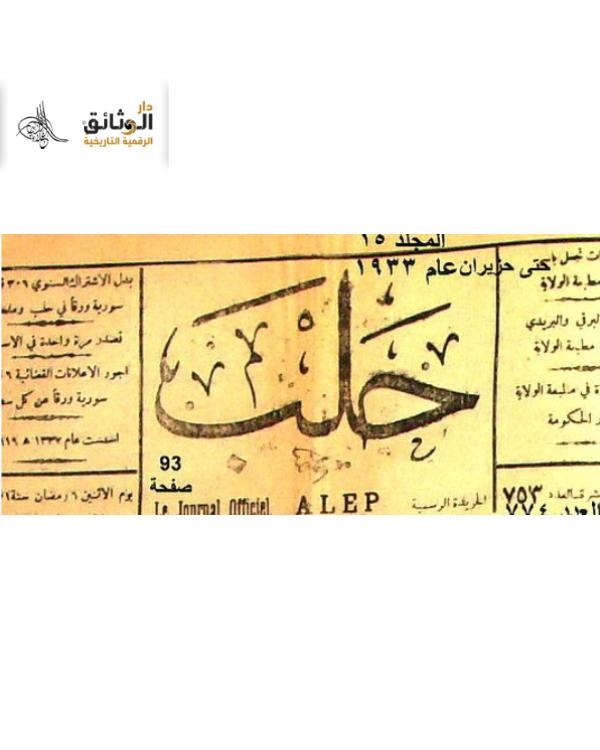 دار
الوثائق
الرقمية التاريخية
المجلد ١٥
حتى حزيران عام ١٩٣٣
مطبعة الولاية
البرقي والبريدي
مطبعة الولاية
في مطبعة الولاية
الحكومة
العدد ٧٥٣
العدد ٧٧٤
حلب
93
صفحة
الجريدة الرسمية
ALEP
Le Journal Officiel
بدل الاشتراك السنوي ٣٠٦
سورية ورقاً في حلب
تصدر مرة واحدة في
اجور الاعلانات القضائية
سورية ورقاً عن كل
اسست عام ١٣٣٧
يوم الاثنين ٦ رمضان سنة